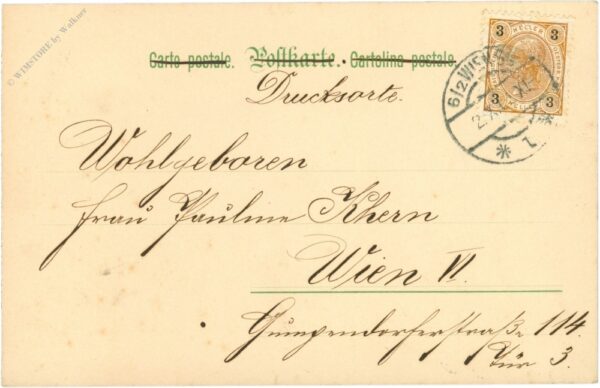 © WIMSTORE by Walkner
Carte postale. Postkarte. Cartolina postale.
Drucksorte.
3 HELLER 3
3 HELLER 3
6/2 WIEN
Wohlgeboren
Frau Pauline Khern
Wien VI.
Gumpendorferstraße 114.
Tür 3.